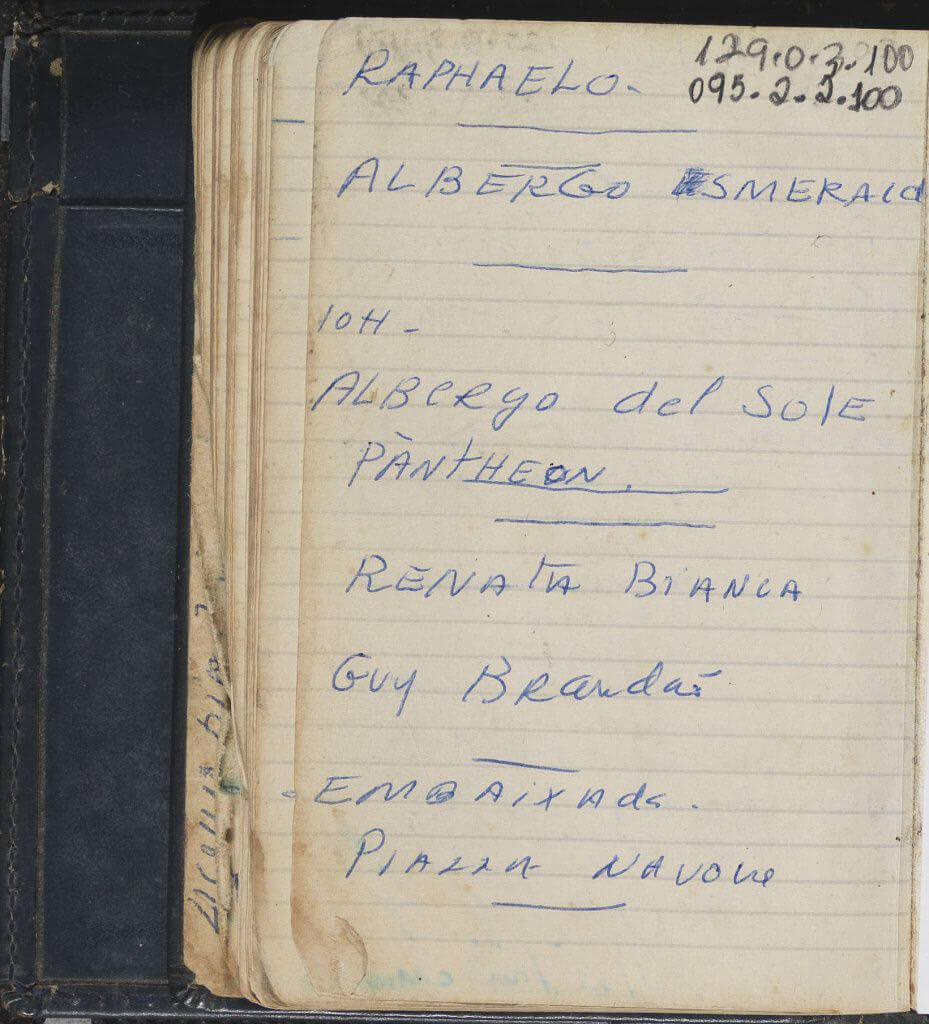 129.0.3.100
095.2.2.100
RAPHAELO.
ALBERGO ESMERALD
10H -
ALBERGO del SOLE
PÀNTHEON.
RENATA BIANCA
Guy Brandão
EMBAIXADA.
PIAZZA NAVONE